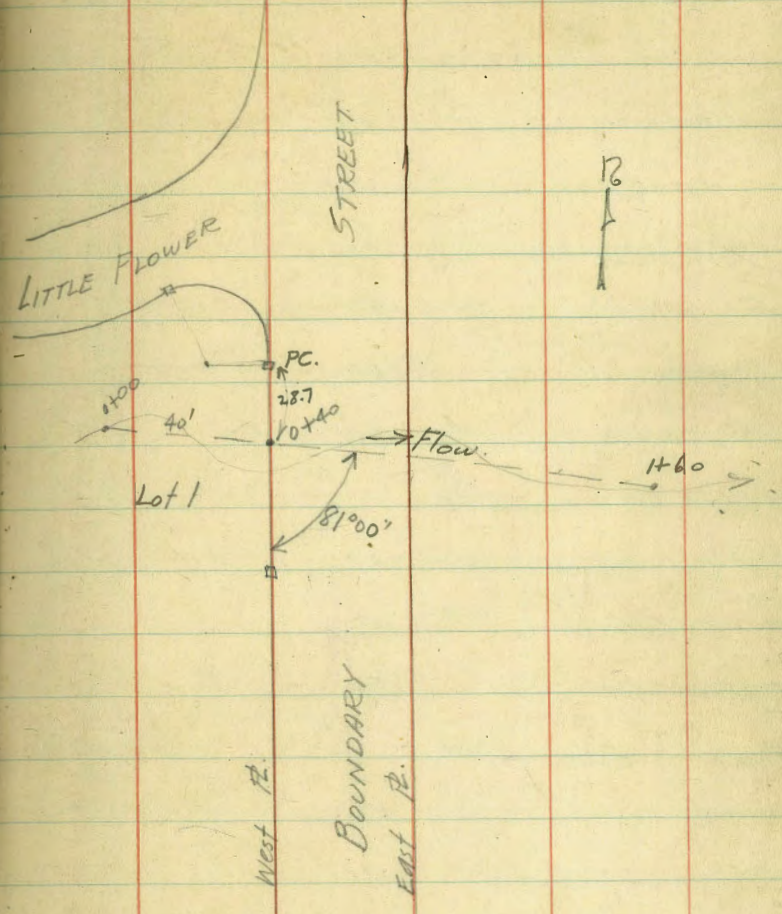 STREET
N
LITTLE FLOWER
PC.
28.7
0+00
40'
0+40
Flow.
1+60
Lot 1
81°00'
BOUNDARY
West PL.
East PL.